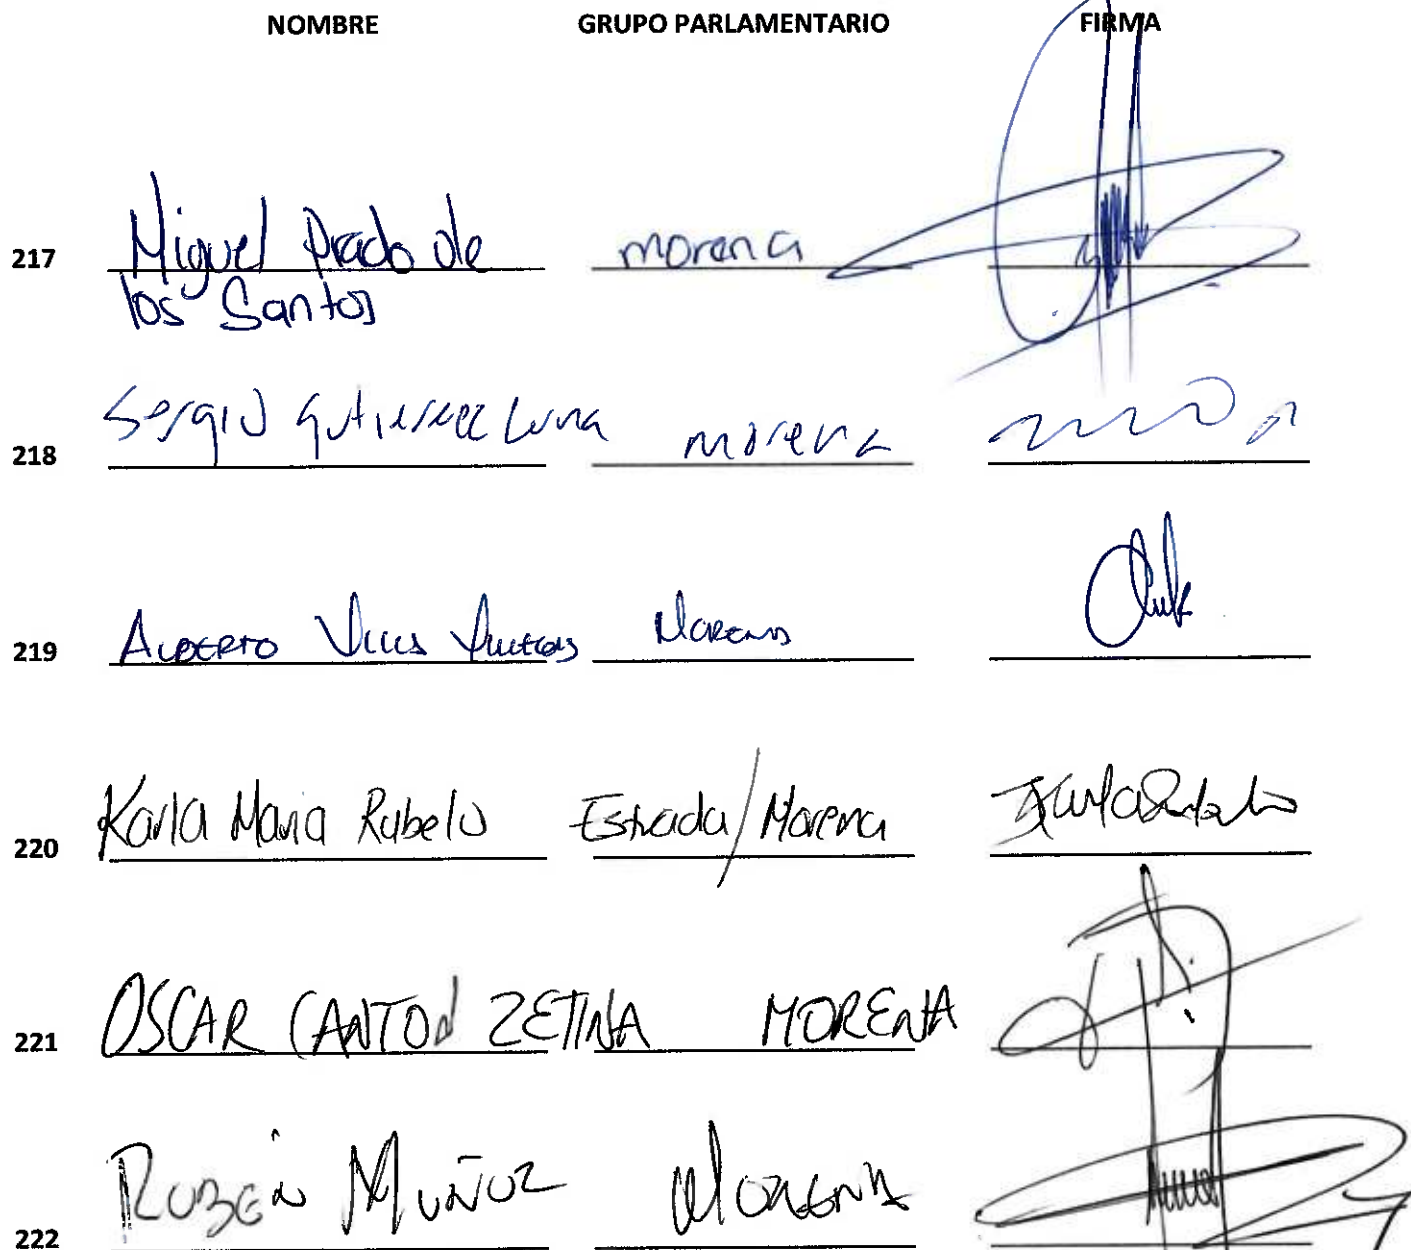 NOMBRE GRUPO PARLAMENTARIO FIRMA
217 Miguel Prado de morena
los Santos
218 Sergio Gutierrez Luna morena
219 ALBERTO MORENA
220 Karla Maria Rabelo Estrada/Morena
221 OSCAR CANTON ZETINA MORENA
222 RUBEN MUÑOZ MORENA